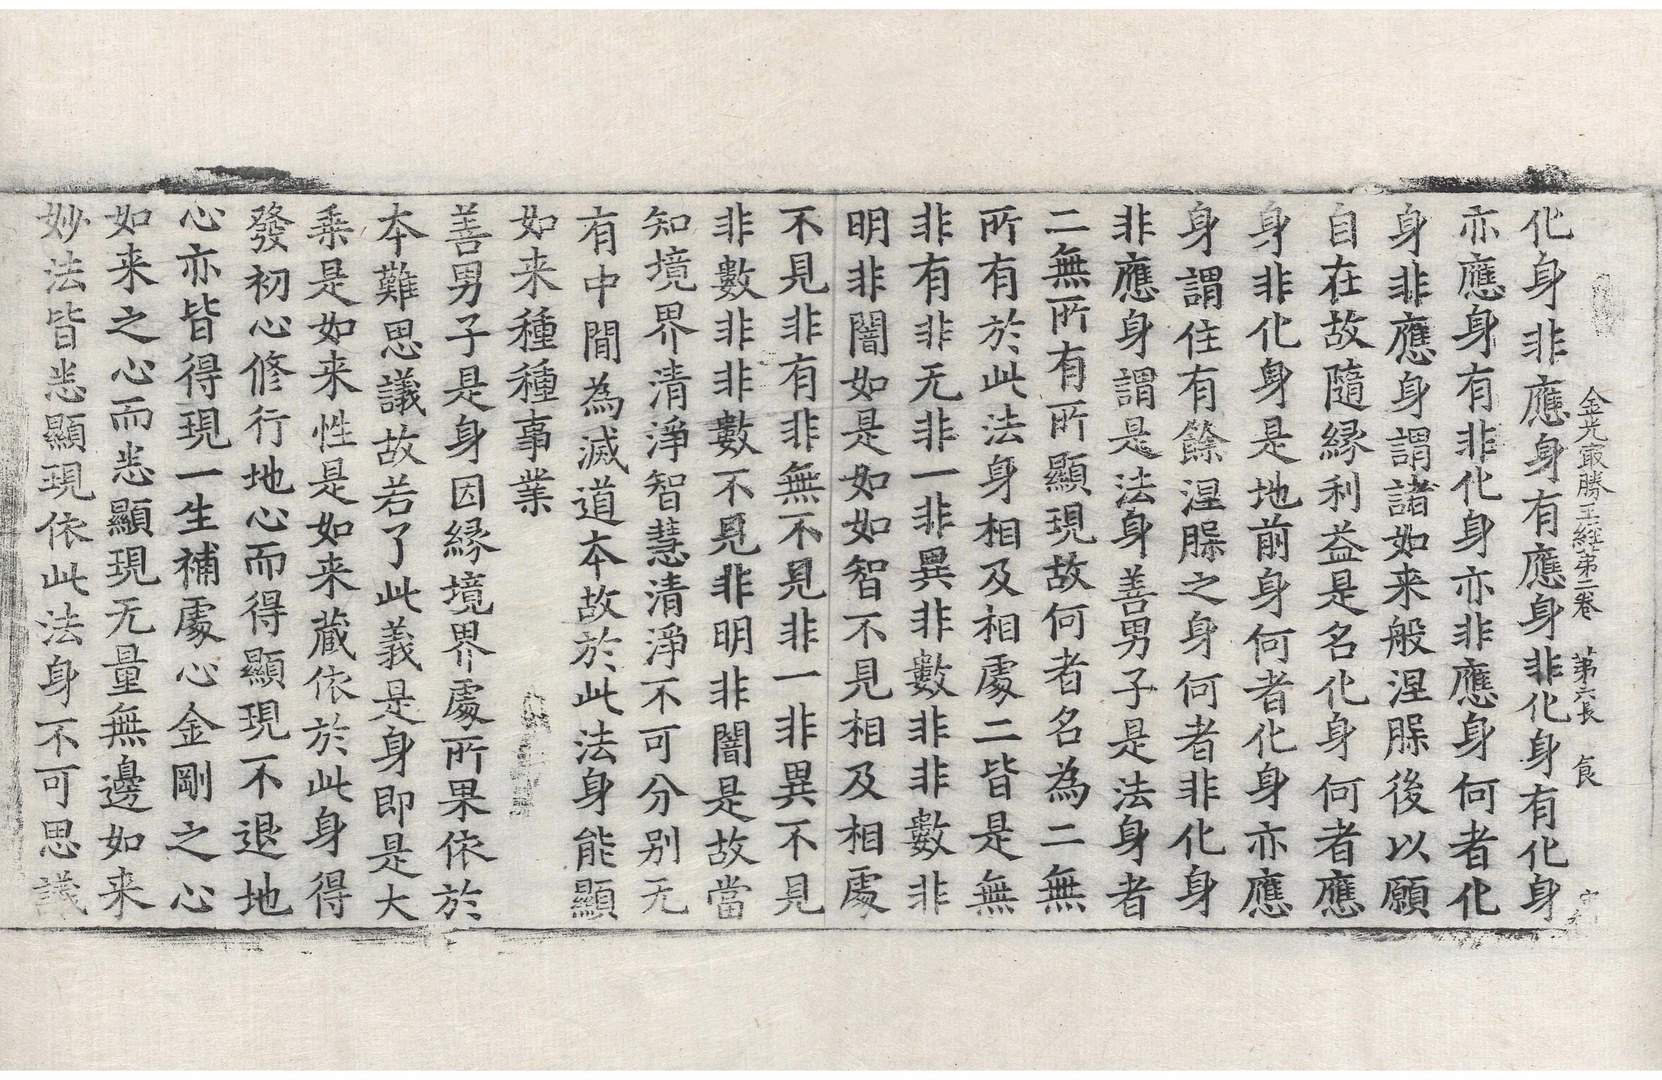 金光㝡勝王經第二卷 第六張 食
化身非應身有應身非化身有化身
亦應身有非化身亦非應身何者化
身非應身謂諸如来般涅㬹後以願
自在故隨縁利益是名化身何者應
身非化身是地前身何者化身亦應
身謂住有餘涅㬹之身何者非化身
非應身謂是法身善男子是法身者
二無所有所顯現故何者名為二無
所有於此法身相及相處二皆是無
非有非无非一非異非數非非數非
明非闇如是如如智不見相及相處
不見非有非無不見非一非異不見
非數非非數不見非明非闇是故當
知境界清淨智慧清淨不可分別无
有中間為滅道本故於此法身能顯
如来種種事業
善男子是身因縁境界處所果依於
本難思議故若了此義是身即是大
乘是如来性是如来藏依於此身得
發初心修行地心而得顯現不退地
心亦皆得現一生補處心金剛之心
如来之心而悉顯現无量無邊如来
妙法皆悉顯現依此法身不可思議